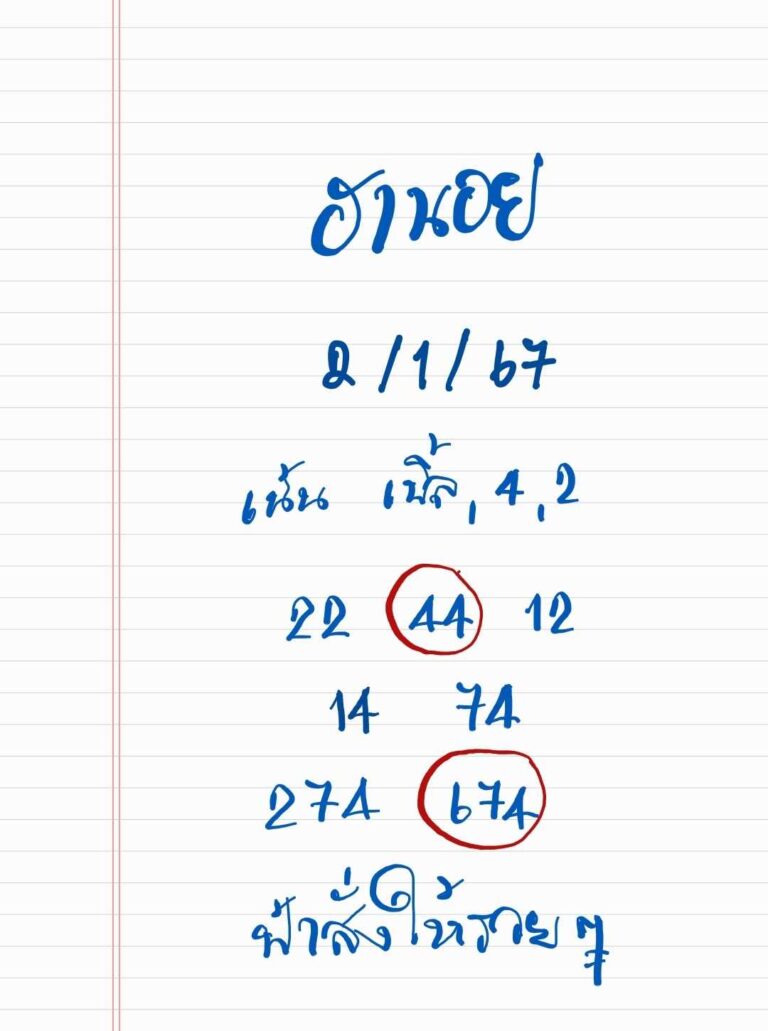 ฮานอย
2/1/67
เน้น เบิ้ล, 4, 2
22 44 12
14 74
274 674
ฟ้าสั่งให้รวย ๆ